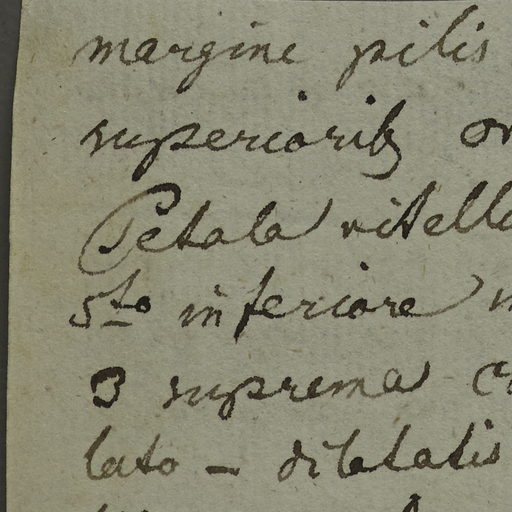 margine pilis
superiorib
Petala vitell
5to inferiore
3 suprema
lato - dilatatis